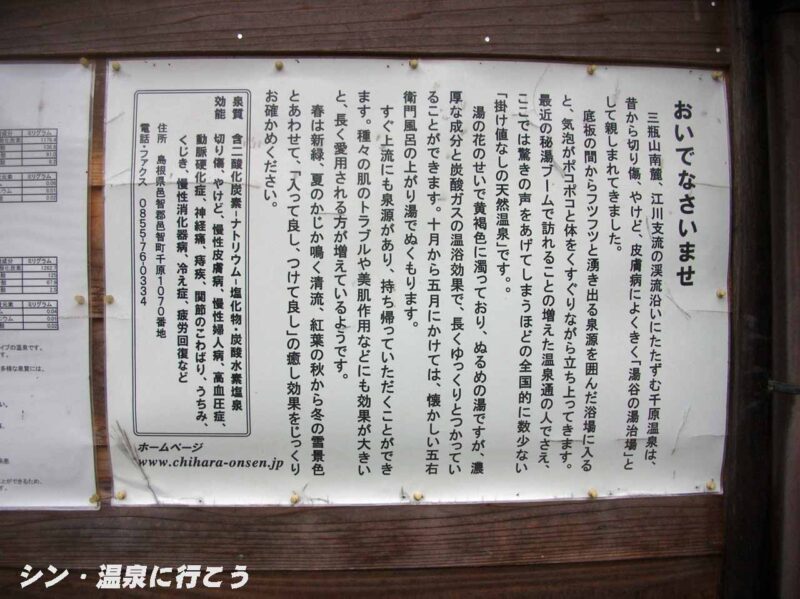 おいでなさいませ
三瓶山南麓、江川支流の渓流沿いにたたずむ千原温泉は、
昔から切り傷、やけど、皮膚病によくきく「湯谷の湯治場」と
して親しまれてきました。
底板の間からフツフツと湧き出る泉源を囲んだ浴場に入る
と、気泡がポコポコと体をくすぐりながら立ち上ってきます。
最近の秘湯ブームで訪れることの増えた温泉通の人でさえ、
ここでは驚きの声をあげてしまうほどの全国的に数少ない
「掛け値なしの天然温泉」です。。
湯の花のせいで黄褐色に濁っており、ぬるめの湯ですが、濃
厚な成分と炭酸ガスの温浴効果で、長くゆっくりとつかってい
ることができます。十月から五月にかけては、懐かしい五右
衛門風呂の上がり湯でぬくもります。
すぐ上流にも泉源があり、持ち帰っていただくことができ
ます。種々の肌のトラブルや美肌作用などにも効果が大きい
と、長く愛用される方が増えているようです。
春は新緑、夏のかじか鳴く清流、紅葉の秋から冬の雪景色
とあわせて、「入って良し、つけて良し」の癒し効果をじっくり
お確かめください。
泉質 含二酸化炭素-ナトリウム-塩化物・炭酸水素塩泉
効能 切り傷、やけど、慢性皮膚病、慢性婦人病、高血圧症、
動脈硬化症、神経痛、痔疾、関節のこわばり、うちみ、
くじき、慢性消化器病、冷え症、疲労回復など
住所 島根県邑智郡邑智町千原1070番地
電話・ファクス 0855-76-0334
ホームページ
www.chihara-onsen.jp
シン・温泉に行こう